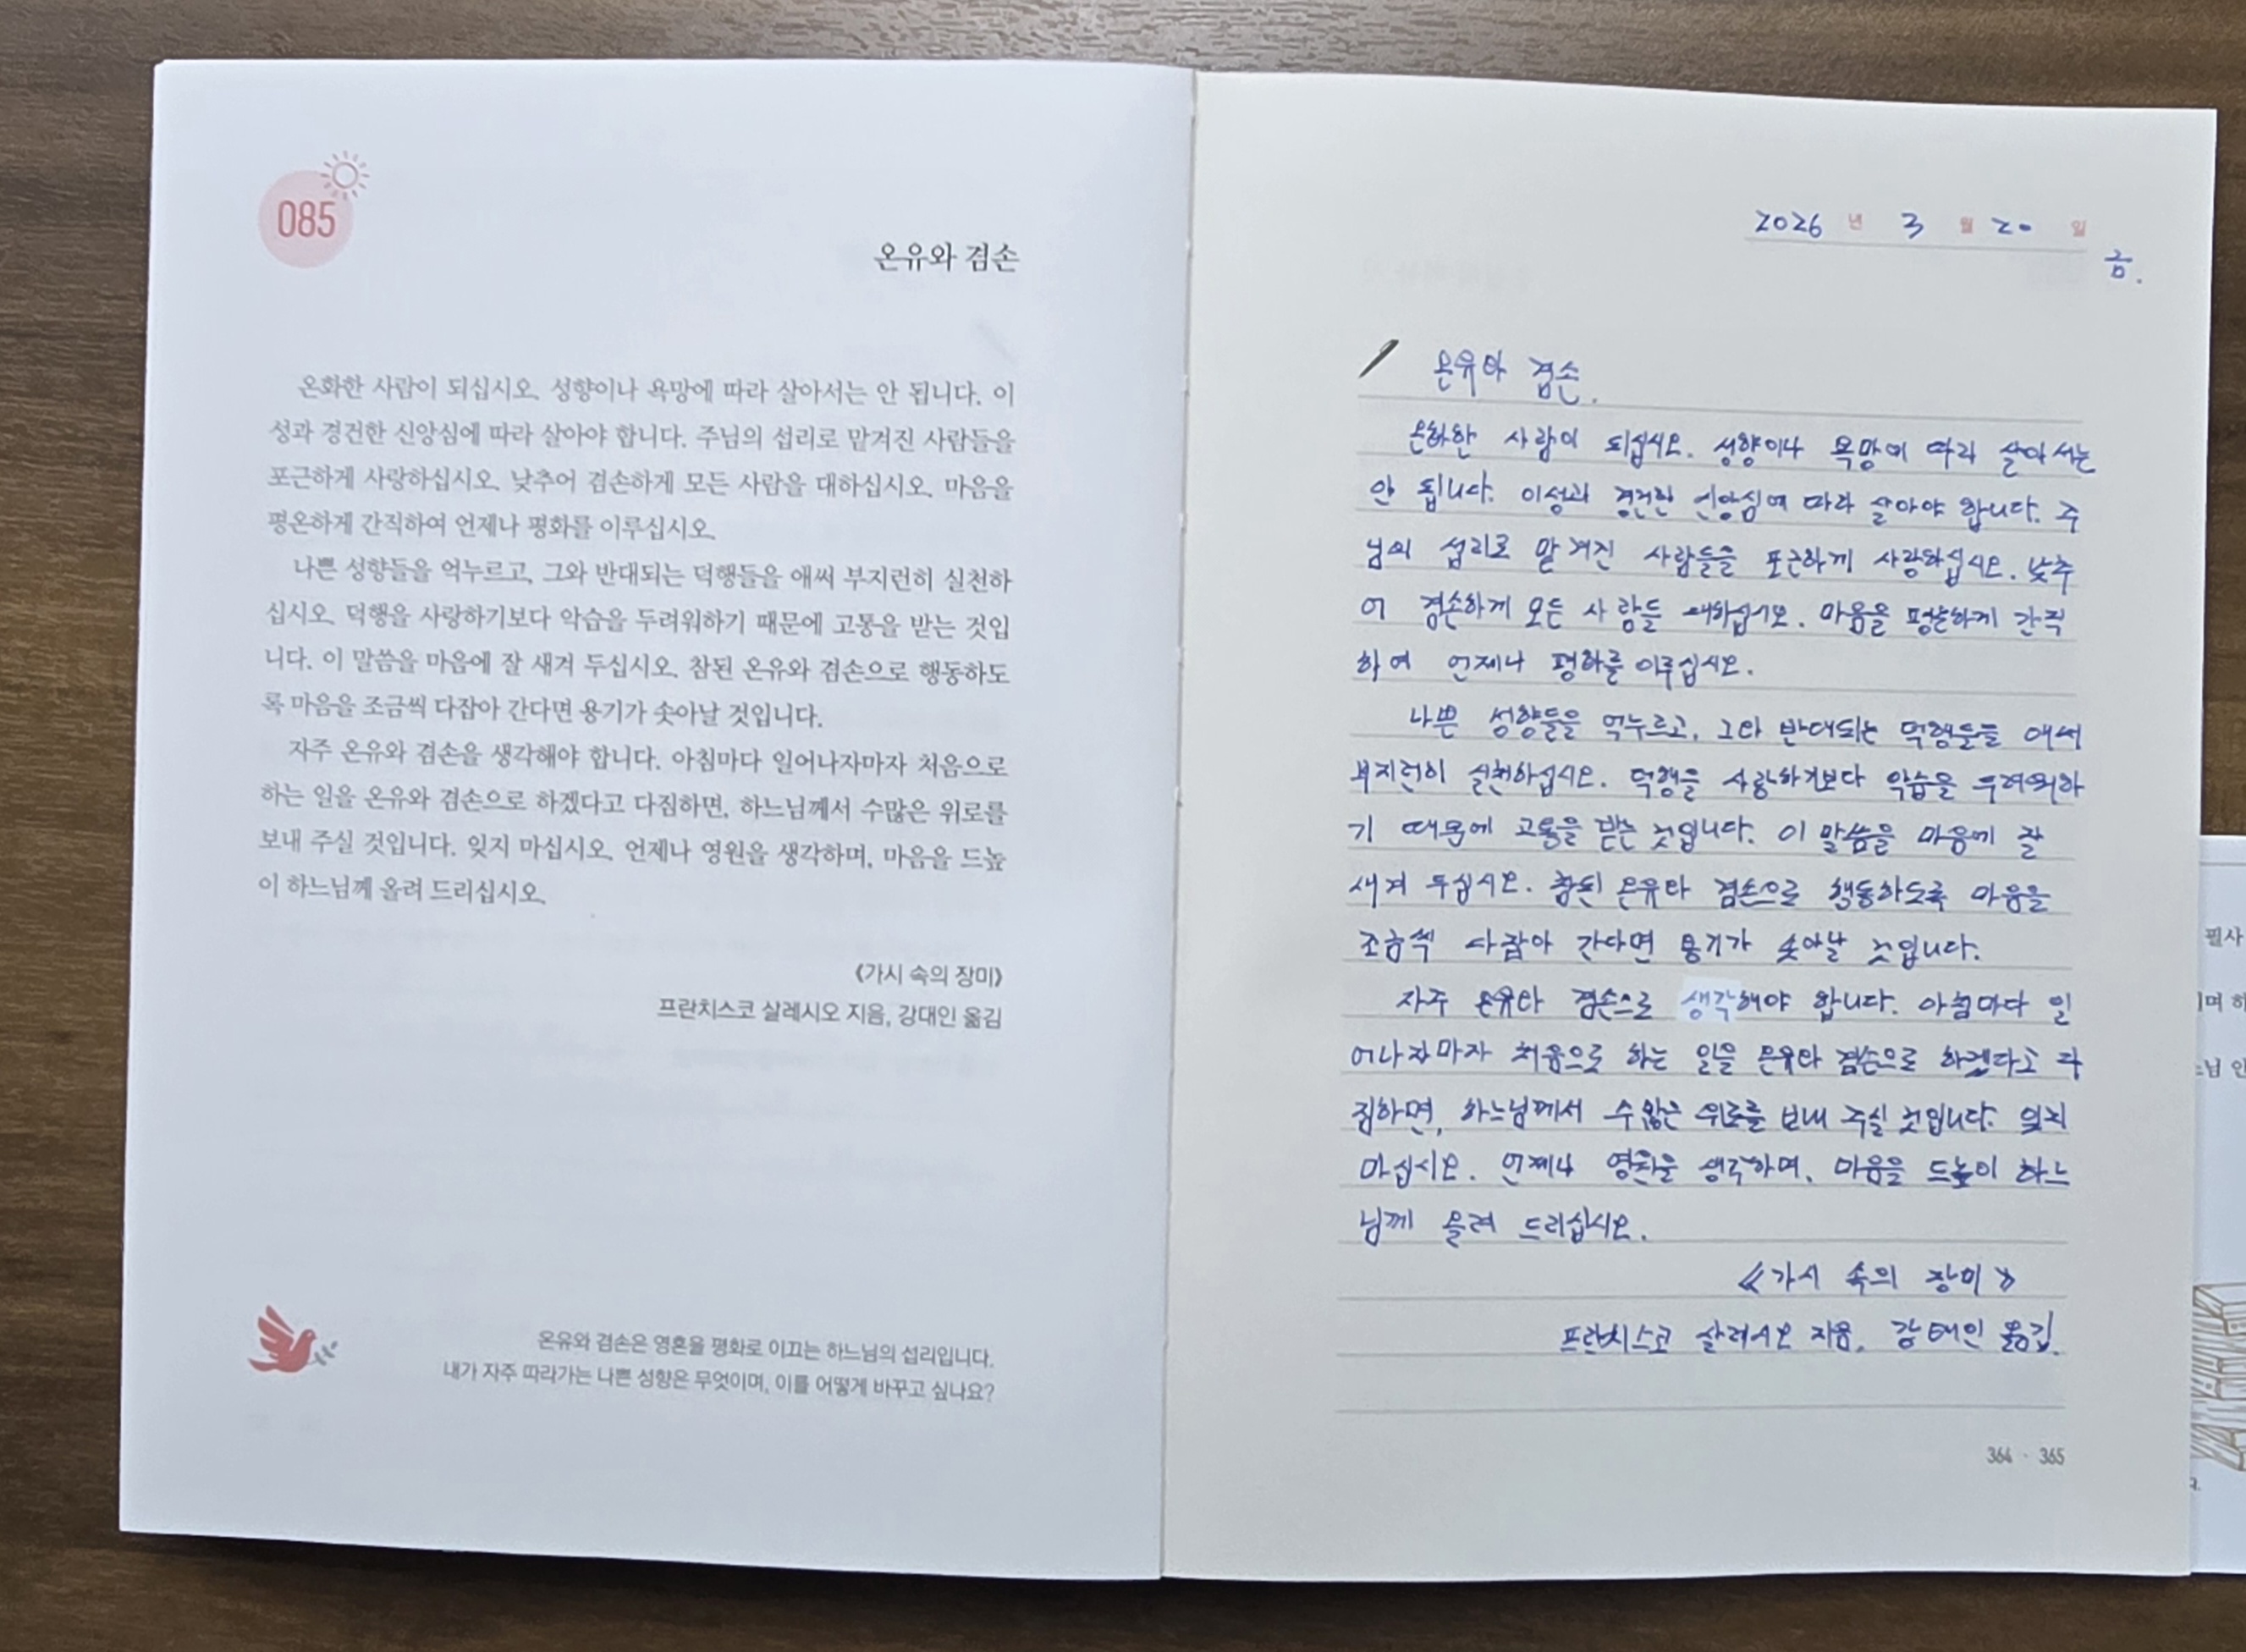 085
온유와 겸손
온화한 사람이 되십시오. 성향이나 욕망에 따라 살아서는 안 됩니다. 이
성과 경건한 신앙심에 따라 살아야 합니다. 주님의 섭리로 맡겨진 사람들을
포근하게 사랑하십시오. 낮추어 겸손하게 모든 사람을 대하십시오. 마음을
평온하게 간직하여 언제나 평화를 이루십시오.
나쁜 성향들을 억누르고, 그와 반대되는 덕행들을 애써 부지런히 실천하
십시오. 덕행을 사랑하기보다 악습을 두려워하기 때문에 고통을 받는 것입
니다. 이 말씀을 마음에 잘 새겨 두십시오. 참된 온유와 겸손으로 행동하도
록 마음을 조금씩 다잡아 간다면 용기가 솟아날 것입니다.
자주 온유와 겸손을 생각해야 합니다. 아침마다 일어나자마자 처음으로
하는 일을 온유와 겸손으로 하겠다고 다짐하면, 하느님께서 수많은 위로를
보내 주실 것입니다. 잊지 마십시오. 언제나 영원을 생각하며, 마음을 드높
이 하느님께 올려 드리십시오.
《가시 속의 장미》
프란치스코 살레시오 지음, 강대인 옮김
온유와 겸손은 영혼을 평화로 이끄는 하느님의 섭리입니다.
내가 자주 따라가는 나쁜 성향은 무엇이며, 이를 어떻게 바꾸고 싶나요?
2026 년 3 월 20 일
금.
온유와 겸손.
온화한 사람이 되십시오. 성향이나 욕망에 따라 살아서는
안 됩니다. 이성과 경건한 신앙심에 따라 살아야 합니다. 주
님의 섭리로 맡겨진 사람들을 포근하게 사랑하십시오. 낮추
어 겸손하게 모든 사람들 대하십시오. 마음을 평온하게 간직
하여 언제나 평화를 이루십시오.
나쁜 성향들을 억누르고, 그와 반대되는 덕행들을 애써
부지런히 실천하십시오. 덕행을 사랑하기보다 악습을 두려워하
기 때문에 고통을 받는 것입니다. 이 말씀을 마음에 잘
새겨 두십시오. 참된 온유와 겸손으로 행동하도록 마음을
조금씩 다잡아 간다면 용기가 솟아날 것입니다.
자주 온유와 겸손으로 생각해야 합니다. 아침마다 일
어나자마자 처음으로 하는 일을 온유와 겸손으로 하겠다고 다
짐하면, 하느님께서 수많은 위로를 보내 주실 것입니다. 잊지
마십시오. 언제나 영원을 생각하며, 마음을 드높이 하느
님께 올려 드리십시오.
《가시 속의 장미》
프란치스코 살레시오 지음, 강대인 옮김.
364 · 365
필사
며 하
님 인